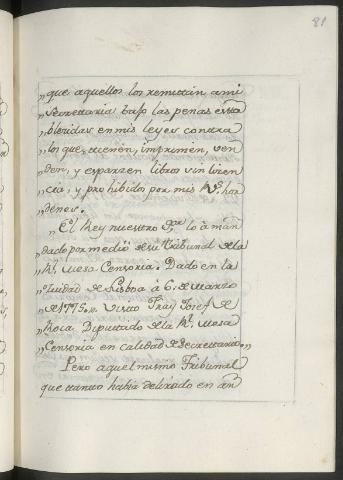 81
„que aquellos los remitan a mi
„Secretaria bajo las penas esta
„blecidas en mis leyes contra
„los que tienen, imprimen, ven
„den, y esparzen libros sin licen
„cia, y prohibido por mis Rs. hor
„denes.
„El Rey nuestro Sor. lo à man
„dado por medio de su tribunal de la
„Rl. Mesa Censoria. Dado en la
„Ciudad de Lisboa à 6. de Marzo
„de 1775. = Visto Fray Josef de
„Roca Diputado de la Rl. Mesa
„Censoria en calidad de Secrettario.„
Pero aquel mismo Tribunal
que ttanto habia delirado en an